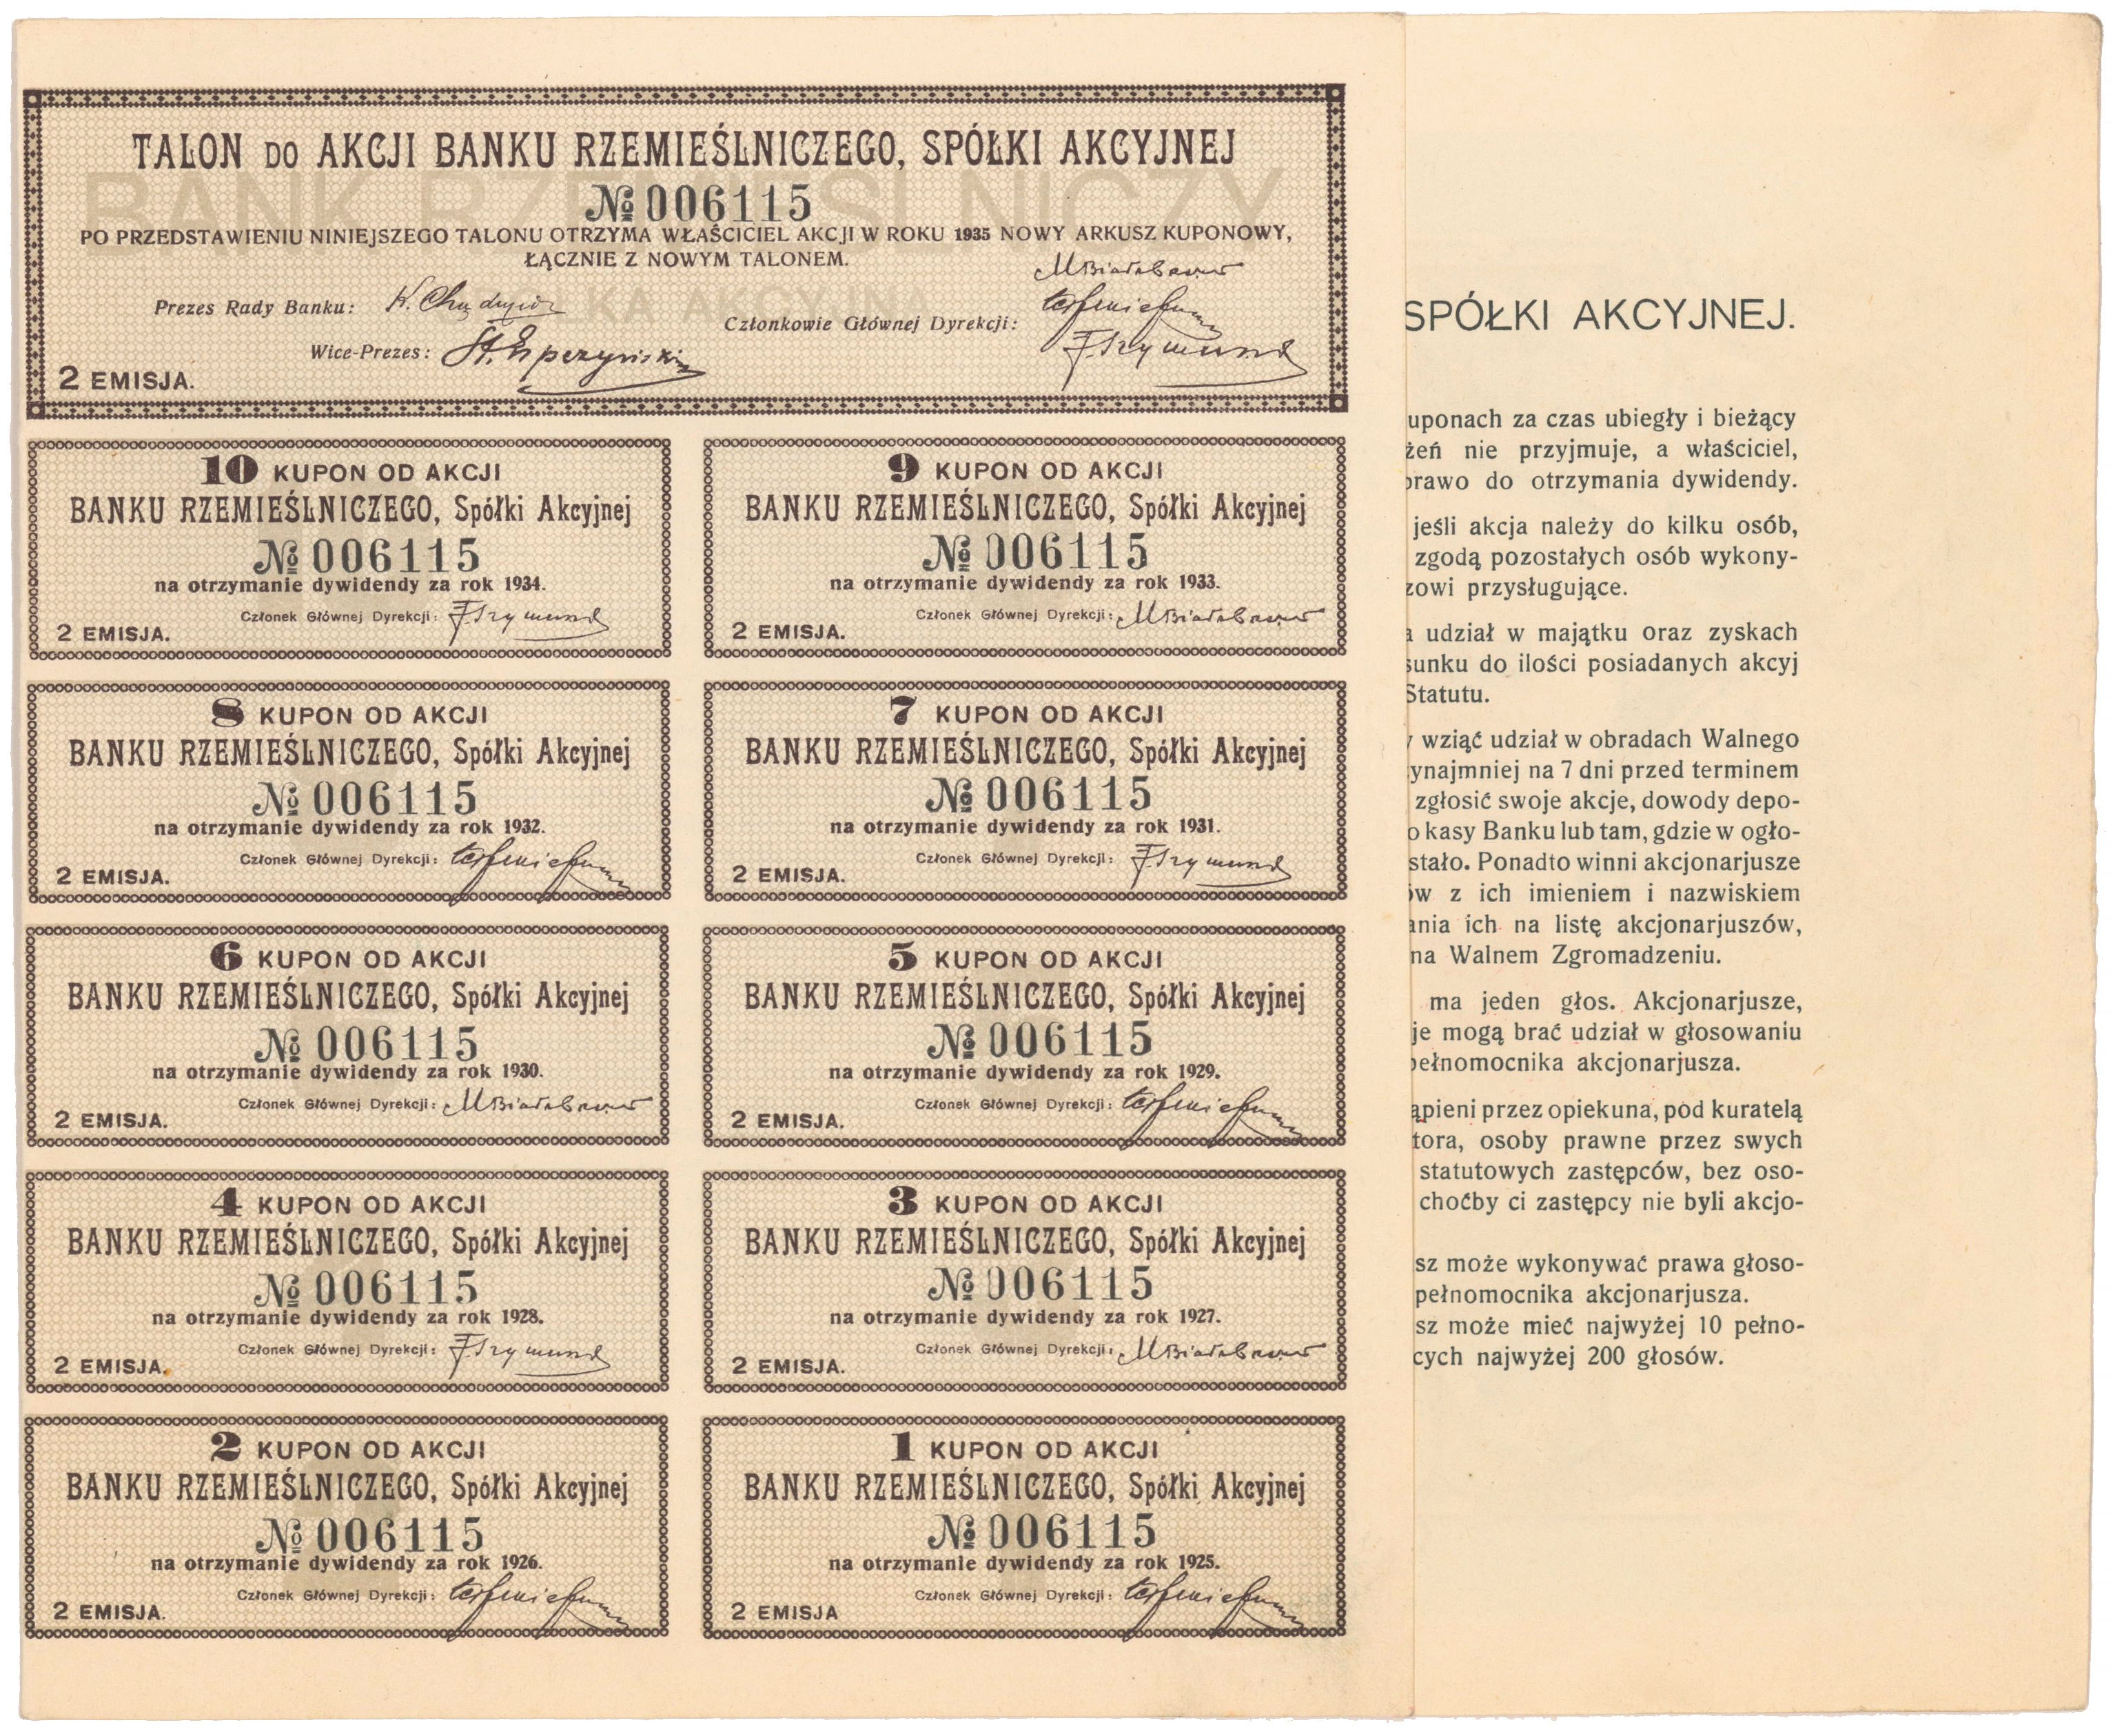 TALON DO AKCJI BANKU RZEMIEŚLNICZEGO, SPÓŁKI AKCYJNEJ
BANK RZEMIEŚLNICZY
№ 006115
PO PRZEDSTAWIENIU NINIEJSZEGO TALONU OTRZYMA WŁAŚCICIEL AKCJI W ROKU 1935 NOWY ARKUSZ KUPONOWY,
ŁĄCZNIE Z NOWYM TALONEM.
Prezes Rady Banku:
Członkowie Głównej Dyrekcji:
Wice-Prezes:
2 EMISJA.
10 KUPON OD AKCJI
BANKU RZEMIEŚLNICZEGO, Spółki Akcyjnej
№ 006115
na otrzymanie dywidendy za rok 1934.
Członek Głównej Dyrekcji:
2 EMISJA.
9 KUPON OD AKCJI
BANKU RZEMIEŚLNICZEGO, Spółki Akcyjnej
№ 006115
na otrzymanie dywidendy za rok 1933.
Członek Głównej Dyrekcji:
2 EMISJA.
8 KUPON OD AKCJI
BANKU RZEMIEŚLNICZEGO, Spółki Akcyjnej
№ 006115
na otrzymanie dywidendy za rok 1932.
Członek Głównej Dyrekcji:
2 EMISJA.
7 KUPON OD AKCJI
BANKU RZEMIEŚLNICZEGO, Spółki Akcyjnej
№ 006115
na otrzymanie dywidendy za rok 1931.
Członek Głównej Dyrekcji:
2 EMISJA.
6 KUPON OD AKCJI
BANKU RZEMIEŚLNICZEGO, Spółki Akcyjnej
№ 006115
na otrzymanie dywidendy za rok 1930.
Członek Głównej Dyrekcji:
2 EMISJA.
5 KUPON OD AKCJI
BANKU RZEMIEŚLNICZEGO, Spółki Akcyjnej
№ 006115
na otrzymanie dywidendy za rok 1929.
Członek Głównej Dyrekcji:
2 EMISJA.
4 KUPON OD AKCJI
BANKU RZEMIEŚLNICZEGO, Spółki Akcyjnej
№ 006115
na otrzymanie dywidendy za rok 1928.
Członek Głównej Dyrekcji:
2 EMISJA.
3 KUPON OD AKCJI
BANKU RZEMIEŚLNICZEGO, Spółki Akcyjnej
№ 006115
na otrzymanie dywidendy za rok 1927.
Członek Głównej Dyrekcji:
2 EMISJA.
2 KUPON OD AKCJI
BANKU RZEMIEŚLNICZEGO, Spółki Akcyjnej
№ 006115
na otrzymanie dywidendy za rok 1926.
Członek Głównej Dyrekcji:
2 EMISJA.
1 KUPON OD AKCJI
BANKU RZEMIEŚLNICZEGO, Spółki Akcyjnej
№ 006115
na otrzymanie dywidendy za rok 1925.
Członek Głównej Dyrekcji:
2 EMISJA
SPÓŁKI AKCYJNEJ.
uponach za czas ubiegły i bieżący
żeń nie przyjmuje, a właściciel,
prawo do otrzymania dywidendy.
jeśli akcja należy do kilku osób,
zgodą pozostałych osób wykony-
zowi przysługujące.
a udział w majątku oraz zyskach
sunku do ilości posiadanych akcyj
Statutu.
wziąć udział w obradach Walnego
ynajmniej na 7 dni przed terminem
zgłosić swoje akcje, dowody depo-
o kasy Banku lub tam, gdzie w ogło-
stało. Ponadto winni akcjonarjusze
ów z ich imieniem i nazwiskiem
ania ich na listę akcjonarjuszów,
na Walnem Zgromadzeniu.
ma jeden głos. Akcjonarjusze,
je mogą brać udział w głosowaniu
pełnomocnika akcjonarjusza.
ąpieni przez opiekuna, pod kuratelą
tora, osoby prawne przez swych
statutowych zastępców, bez oso-
choćby ci zastępcy nie byli akcjo-
sz może wykonywać prawa głoso-
pełnomocnika akcjonarjusza.
sz może mieć najwyżej 10 pełno-
cych najwyżej 200 głosów.